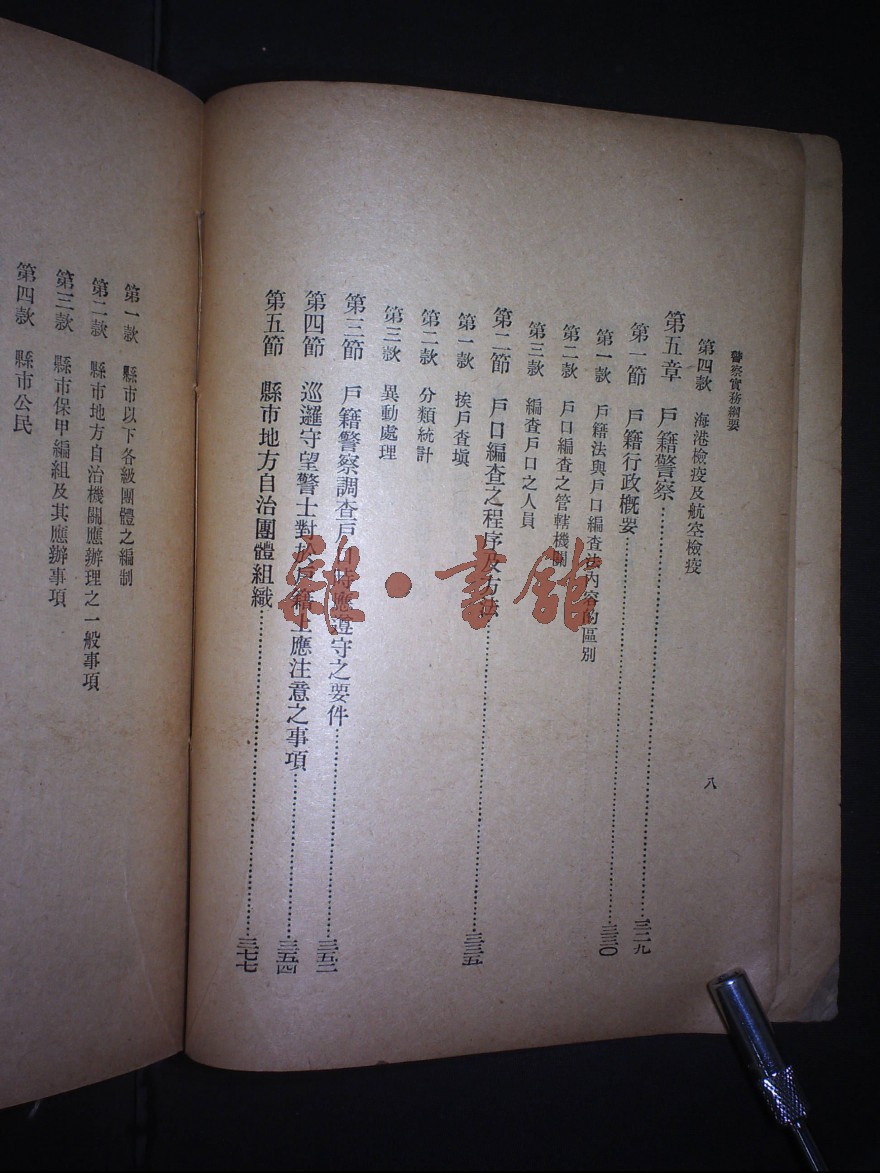 警察實務綱要
八
第四款 海港檢疫及航空檢疫
第五章 戶籍警察……三二九
第一節 戶籍行政概要……三三〇
第一款 戶籍法與戶口編查法內容的區別
第二款 戶口編查之管轄機關
第三款 編查戶口之人員
第二節 戶口編查之程序及方法……三三五
第一款 挨戶查填
第二款 分類統計
第三款 異動處理
第三節 戶籍警察調查戶口時應遵守之要件……三五二
第四節 巡邏守望警士對於戶籍上應注意之事項……三五四
第五節 縣市地方自治團體組織……三七七
第一款 縣市以下各級團體之編制
第二款 縣市地方自治機關應辦理之一般事項
第三款 縣市保甲編組及其應辦事項
第四款 縣市公民
雜·書館